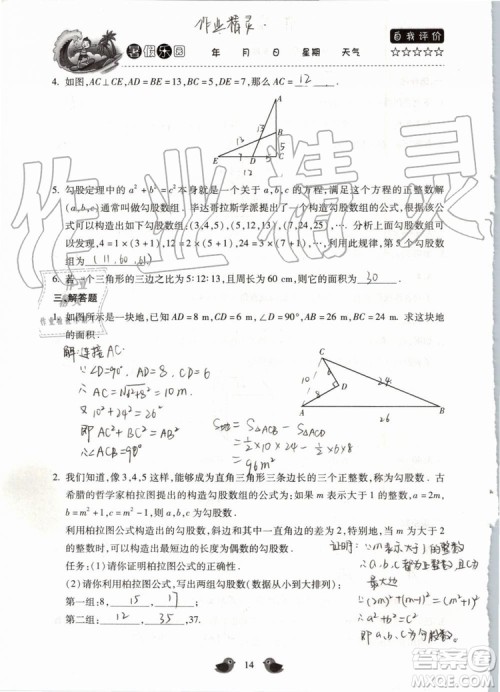 作业精灵.
暑假乐园 年 月 日 星期 天气 自我评价
☆☆☆☆☆
4. 如图,AC⊥CE,AD=BE=13,BC=5,DE=7,那么AC= 12 .
A
13
B
13
5
7 5
E D C
12
5. 勾股定理中的a²+b²=c²本身就是一个关于a,b,c的方程,满足这个方程的正整数解
(a,b,c)通常叫做勾股数组.毕达哥拉斯学派提出了一个构造勾股数组的公式,根据该公
式可以构造出如下勾股数组:(3,4,5),(5,12,13),(7,24,25),….分析上面勾股数组可
以发现,4=1×(3+1),12=2×(5+1),24=3×(7+1),…,利用此规律,第5个勾股数
组为 (11,60,61) .
6. 若一个三角形的三边之比为5:12:13,且周长为60 cm,则它的面积为 30 .
三、解答题
1. 如图所示是一块地,已知AD=8 m,CD=6 m,∠D=90°,AB=26 m,BC=24 m.求这块地
的面积.
解:连接AC.
∵∠D=90°. AD=8, CD=6
∴AC=√6²+8²=10
又10²+24²=26²
即AC²+BC²=AB²
∴∠ACB=90°
S地=S△ACB-S△ACD
=½×10×24-½×6×8
=96m²
C
6
10
D
24
8
A 26 B
2. 我们知道,像3,4,5这样,能够成为直角三角形三条边长的三个正整数,称为勾股数.古
希腊的哲学家柏拉图提出的构造勾股数组的公式为:如果m表示大于1的整数,a=2m,
b=m²-1,c=m²+1,则a,b,c为勾股数.
利用柏拉图公式构造出的勾股数,斜边和其中一条直角边的差为2,特别地,当m为大于2
的整数时,可以构造出最短边的长度为偶数的勾股数.
任务:(1)请你证明柏拉图公式的正确性.
(2)请你利用柏拉图公式,写出两组勾股数(数据从小到大排列):
第一组:8, 15 , 17 ;
第二组: 12 , 35 ,37.
证明:∵m表示大于1的整数
∴a,b,c都为正整数,且c为
最大边
∵(2m)²+(m²-1)²=(m²+1)²
∴a²+b²=c²
即a,b,c为勾股数.
14